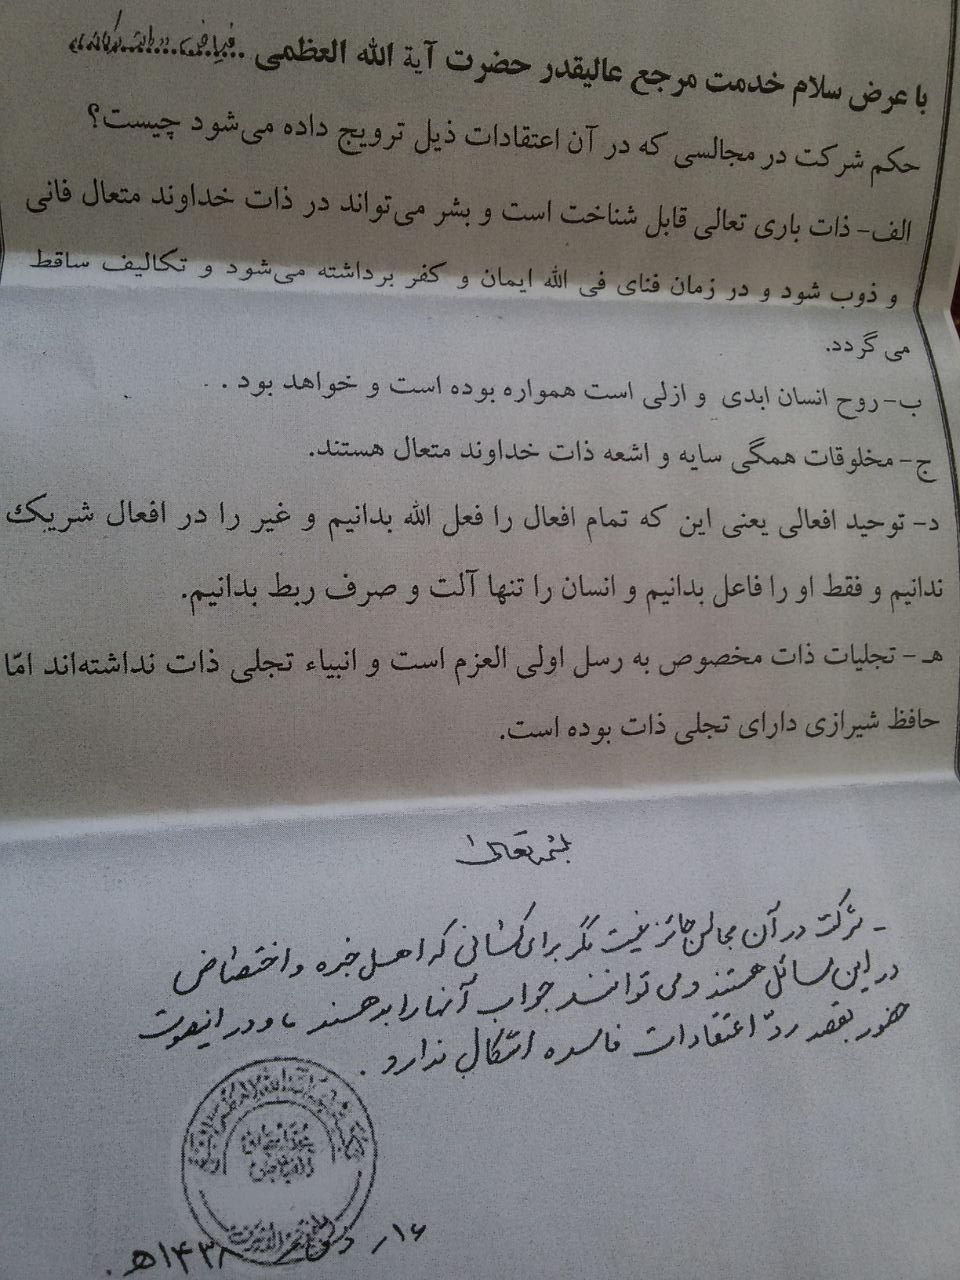 با عرض سلام خدمت مرجع عالیقدر حضرت آیة الله العظمی ..فیاض....دامت برکاته..
حکم شرکت در مجالسی که در آن اعتقادات ذیل ترویج داده می‌شود چیست؟
الف- ذات باری تعالی قابل شناخت است و بشر می‌تواند در ذات خداوند متعال فانی
و ذوب شود و در زمان فنای فی الله ایمان و کفر برداشته می‌شود و تکالیف ساقط
می گردد.
ب- روح انسان ابدی و ازلی است همواره بوده است و خواهد بود .
ج- مخلوقات همگی سایه و اشعه ذات خداوند متعال هستند.
د- توحید افعالی یعنی این که تمام افعال را فعل الله بدانیم و غیر را در افعال شریک
ندانیم و فقط او را فاعل بدانیم و انسان را تنها آلت و صرف ربط بدانیم.
هـ - تجلیات ذات مخصوص به رسل اولی العزم است و انبیاء تجلی ذات نداشته‌اند امّا
حافظ شیرازی دارای تجلی ذات بوده است.
بسمه تعالی
- شرکت در آن مجالس جائز نیست مگر برای کسانی که اهل خبره و اختصاص
در این مسائل هستند و می توانند جواب آنها را بدهند و در اینصورت
حضور بقصد ردّ اعتقادات فاسده اشکال ندارد .
محمد اسحاق الفیاض
النجف الاشرف
۱۶ ۱۴۳۸هـ .